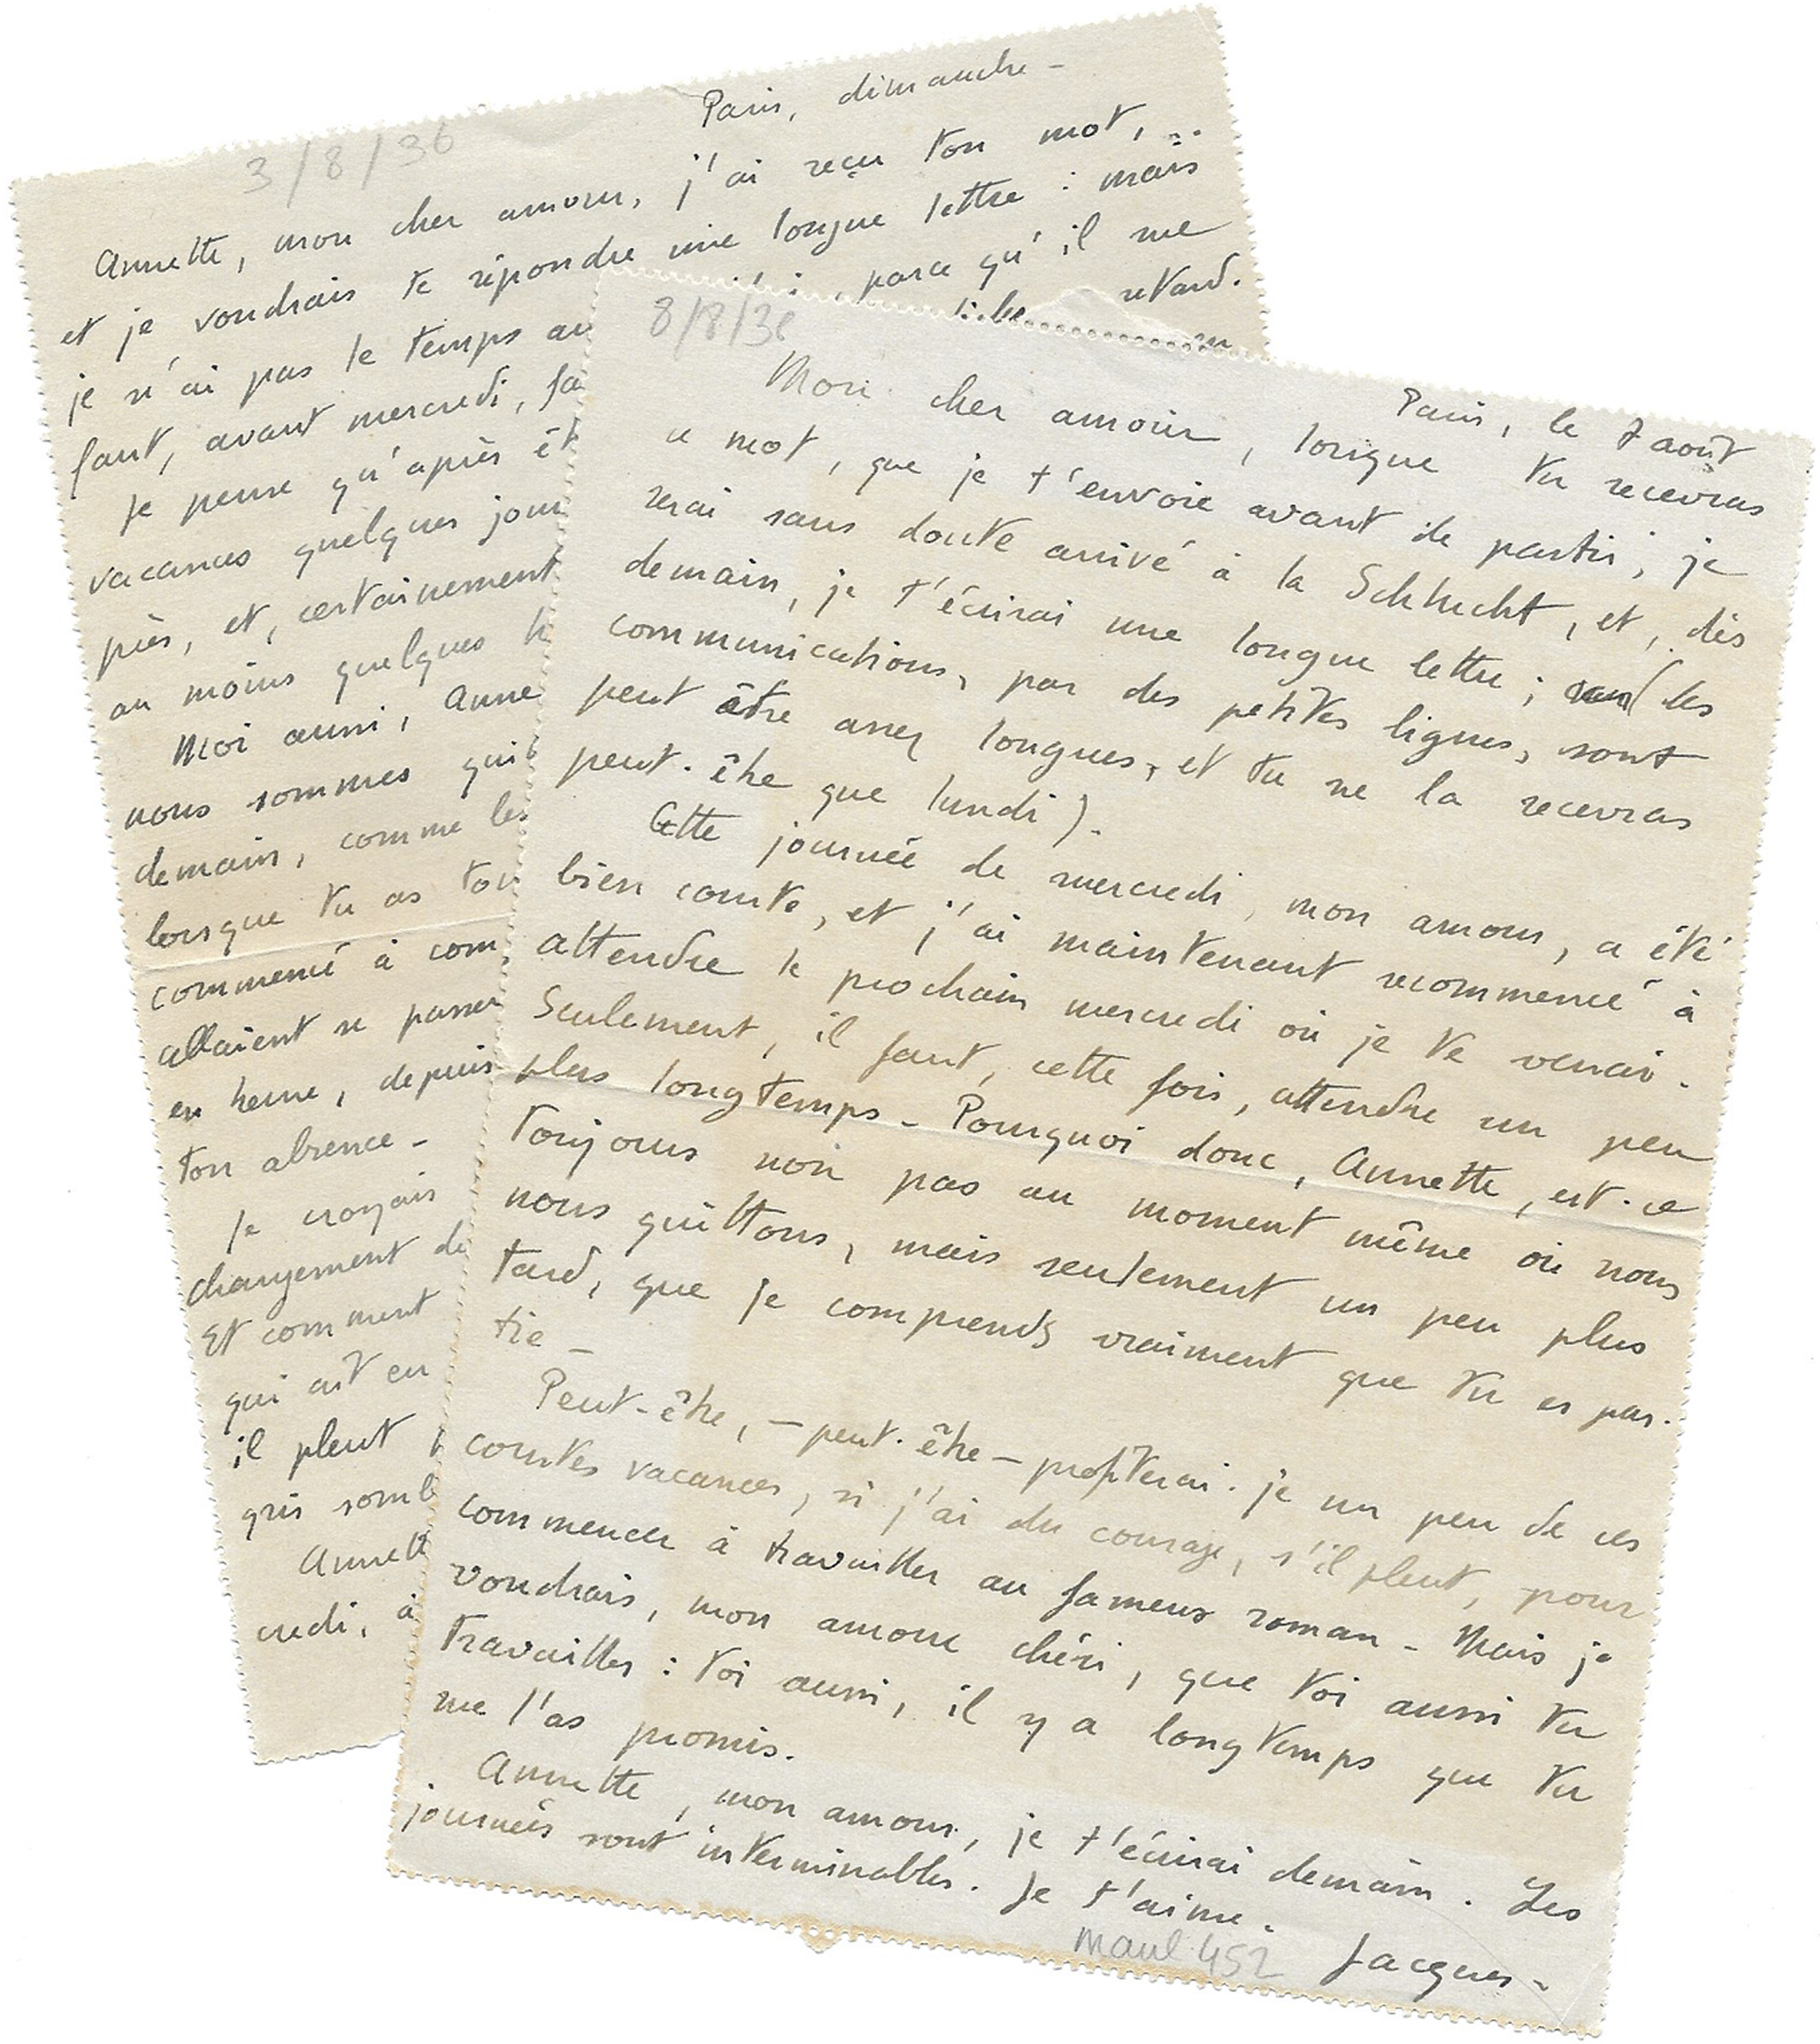 Paris, dimanche –
3/8/36
Annette, mon cher amour, j'ai reçu ton mot,
et je voudrais te répondre une longue lettre : mais
je n'ai pas le temps au parce qu'il me
faut, avant mercredi, fa retard.
Je pense qu'après êt
vacances quelques jour
près, et, certainement
au moins quelques h
Moi aussi, Anne
nous sommes quit
demain, comme les
lorsque tu as ton
commencé à com
allaient se passer
en heure, depuis
ton absence –
Je croyais
changement de
Et comment
qui ait eu
il pleut
gris somb
Annett
credi, à
8/8/36
Paris, le 7 août
Mon cher amour, lorsque tu recevras
ce mot, que je t'envoie avant de partir, je
serai sans doute arrivé à la Schlucht, et, dès
demain, je t'écrirai une longue lettre ; (les
communications, par des petites lignes, sont
peut être assez longues, et tu ne la recevras
peut-être que lundi).
Cette journée de mercredi, mon amour, a été
bien courte, et j'ai maintenant recommencé à
attendre le prochain mercredi où je te verrai.
Seulement, il faut, cette fois, attendre un peu
plus longtemps – Pourquoi donc, Annette, est-ce
toujours non pas au moment même où nous
nous quittons, mais seulement un peu plus
tard, que je comprends vraiment que tu es par-
tie –
Peut-être, – peut-être – profiterai-je un peu de ces
courtes vacances, si j'ai du courage, s'il pleut, pour
commencer à travailler au fameux roman – Mais je
voudrais, mon amour chéri, que toi aussi tu
travailles : toi aussi, il y a longtemps que tu
me l'as promis.
Annette, mon amour, je t'écrirai demain. Les
journées sont interminables. Je t'aime.
Maul 452 Jacques –